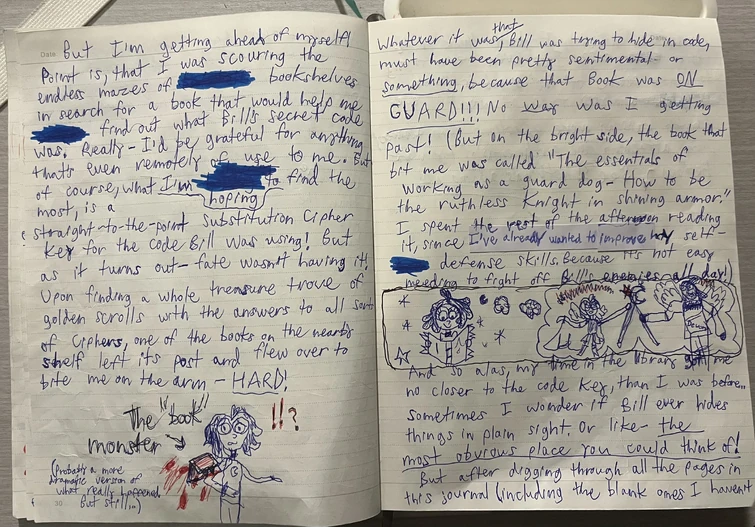 But I'm getting ahead of myself!
Point is, that I was scouring the
endless mazes of bookshelves
in search for a book that would help me
find out what Bill's secret code
was. Really- I'd be grateful for anything
that's even remotely of use to me. But
of course, what I'm hoping to find the
most, is a
straight-to-the-point Substitution Cipher
Key for the code Bill was using! But
as it turns out- fate wasn't having it!
Upon finding a whole treasure trove of
golden scrolls with the answers to all sorts
of ciphers, one of the books on the nearby
shelf left its post and flew over to
bite me on the arm - HARD!
The "book"
monster
!!?
(Probably a more
dramatic version of
what really happened
but still...)
30
Date
whatever it was, that Bill was trying to hide in code,
must have been pretty sentimental- or
something, because that Book was ON
GUARD!!! No way was I getting
past! (But on the bright side, the book that
bit me was called "The essentials of
working as a guard dog- How to be
the ruthless Knight in shining armor."
I spent the rest of the afternoon reading
it, since I've already wanted to improve my self-
defense skills. Because it's not easy
needing to fight off Bill's enemies all day!)
And so alas, my time in the library got me
no closer to the code key, than I was before...
sometimes I wonder if Bill ever hides
things in plain sight. Or like- the
most obvious place you could think of!
But after digging through all the pages in
this journal (including the blank ones I haven't